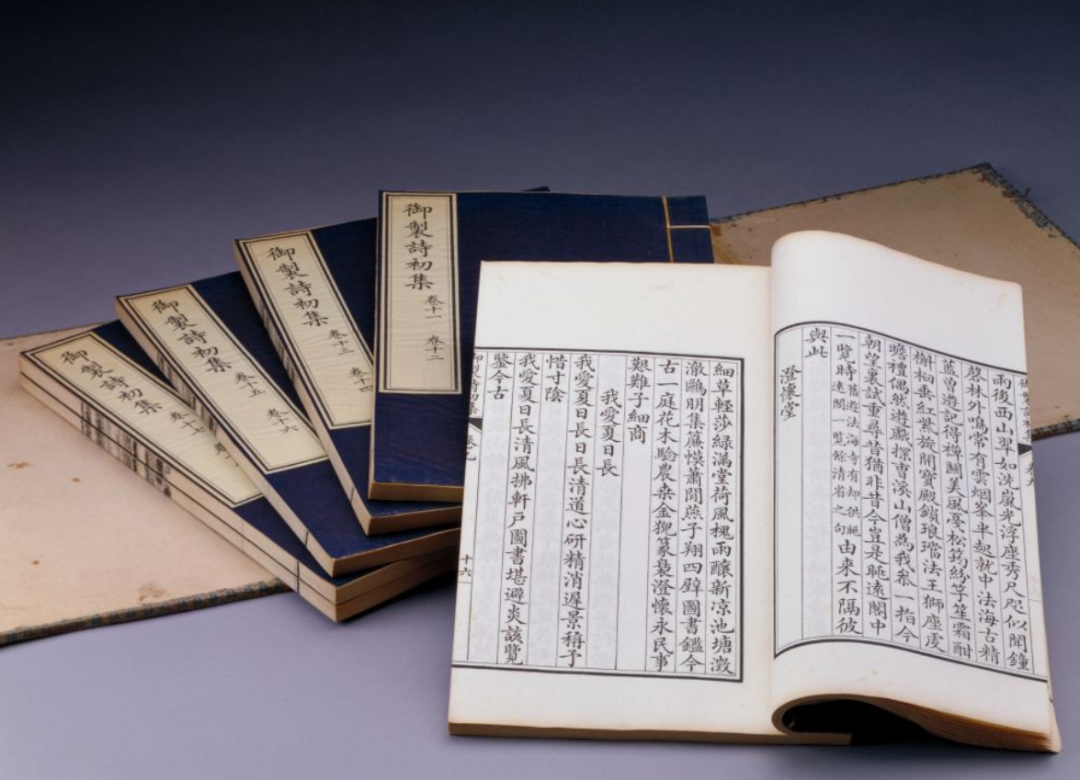 御製詩初集 卷十一 卷十二
御製詩初集 卷十三 卷十四
御製詩初集 卷十五 卷十六
御製詩初集 卷十七
雨後西山翠如洗嵐光浮座秀尺咫似聞鐘
磬林外鳴常有雲烟峯半起就中法海古精
藍曾遊記得禪關美風亭松筠紛竽笙霜酣
槲柏垂紅紫旃閒寶殿鎖琅璫法王獅座虔
瞻禮偶然遊戲探曹溪山僧為我叅一指今
朝望裏試重尋昔猶非昔今豈是眺遠閣中
一覽時舊遊法海寺有却供眺遠閣一覽餘清省之句由來不隔彼
與此
澄懷堂
細草輕莎綠滿堂荷風槐雨釀新凉池塘澂
澈鷗朋集簾幙蕭閒燕子翔四壁圖書鑑今
古一庭花木驗農桒金猊篆裊澄懷永民事
艱難子細商
我愛夏日長
我愛夏日長日長清道心研精消遲景稱予
惜寸陰
我愛夏日長清風拂軒戶圖書堪避炎該覽
鑒今古
御製詩初集 卷九 十六